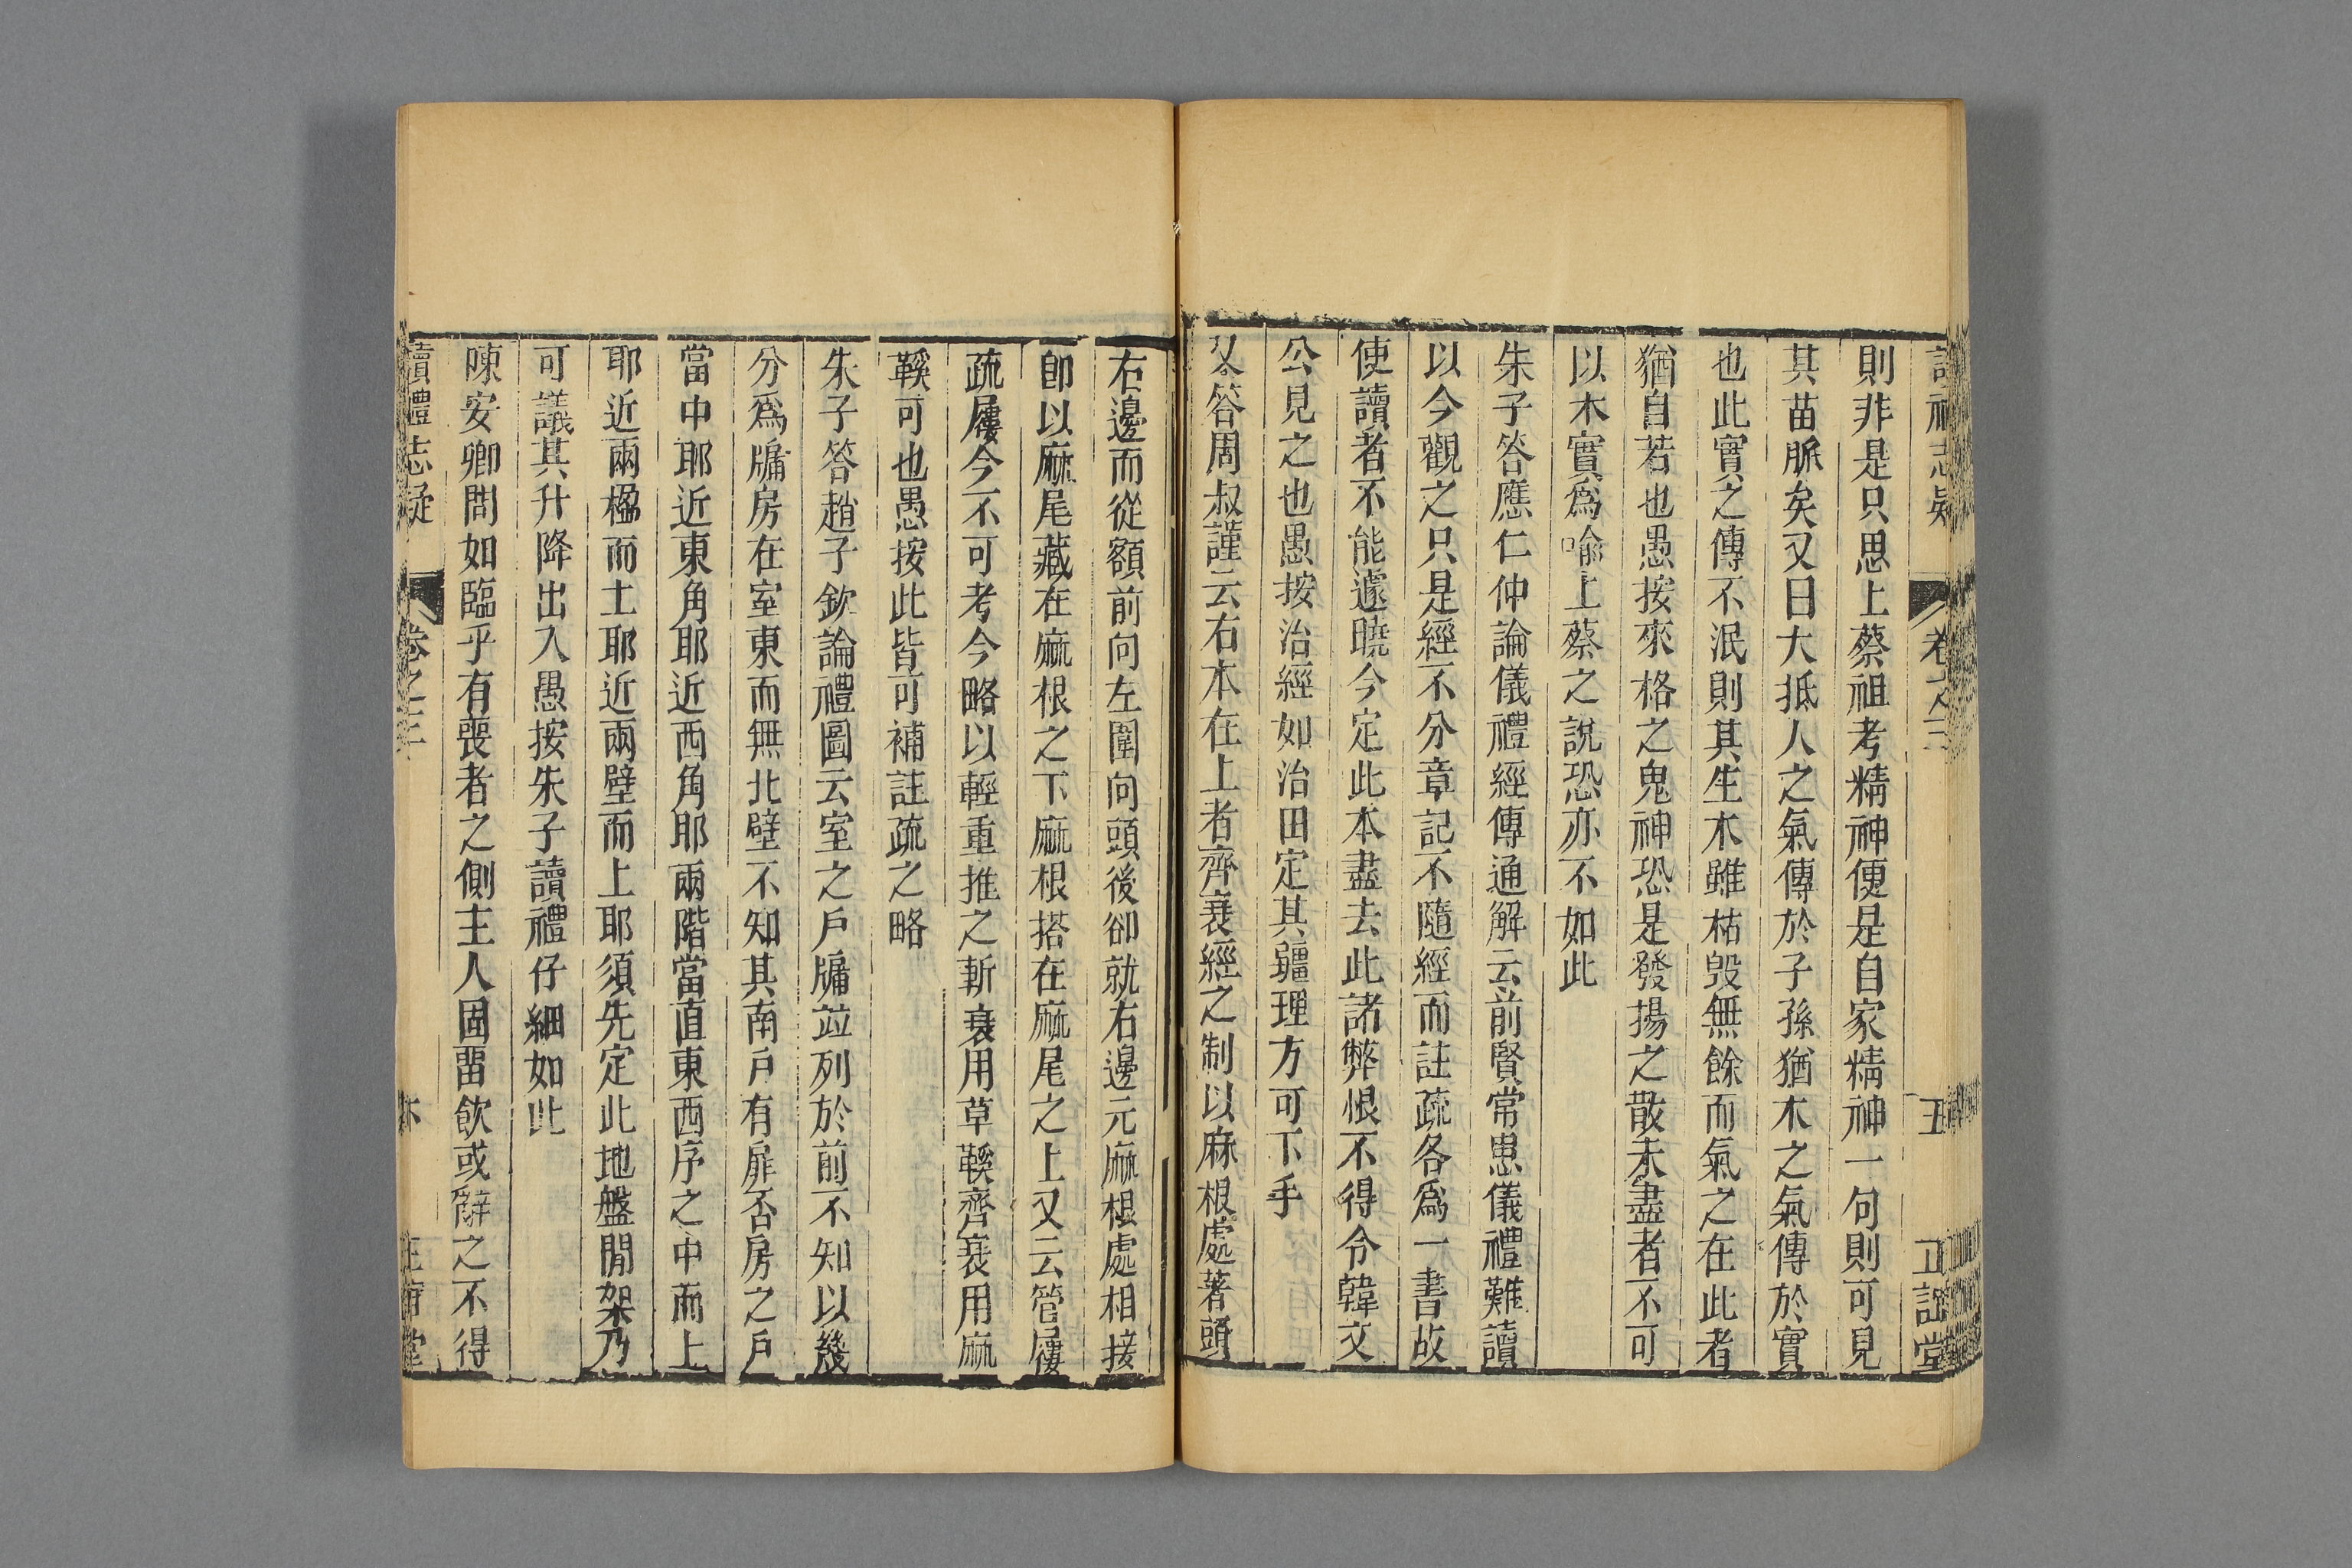 則非是只思上蔡祖考精神便是自家精神一句則可見
其苗脈矣又曰大抵人之氣傳於子孫猶木之氣傳於實
也此實之傳不泯則其生木雖枯毁無餘而氣之在此者
猶自若也愚按來格之鬼神恐是發揚之散未盡者不可
以木實爲喻上蔡之說恐亦不如此
朱子答應仁仲論儀禮經傳通解云前賢常患儀禮難讀
以今觀之只是經不分章記不隨經而註疏各爲一書故
使讀者不能遽曉今定此本盡去此諸弊恨不得令韓文
公見之也愚按治經如治田定其疆理方可下手
又答周叔謹云右本在上者齊衰絰之制以麻根處著頭
右邊而從額前向左圍向頭後卻就右邊元麻根處相接
卽以麻尾藏在麻根之下麻根搭在麻尾之上又云管屨
疏屨今不可考今略以輕重推之斬衰用草鞵齊衰用麻
鞵可也愚按此皆可補註疏之略
朱子答趙子欽論禮圖云室之戶牖竝列於前不知以幾
分爲牖房在室東而無北壁不知其南戶有扉否房之戶
當中耶近東角耶近西角耶兩階當直東西序之中而上
耶近兩楹而土耶近兩壁而上耶須先定此地盤閒架乃
可議其升降出入愚按朱子讀禮仔細如此
陳安卿問如臨乎有喪者之側主人固畱飲或辭之不得
讀禮志疑 卷之三